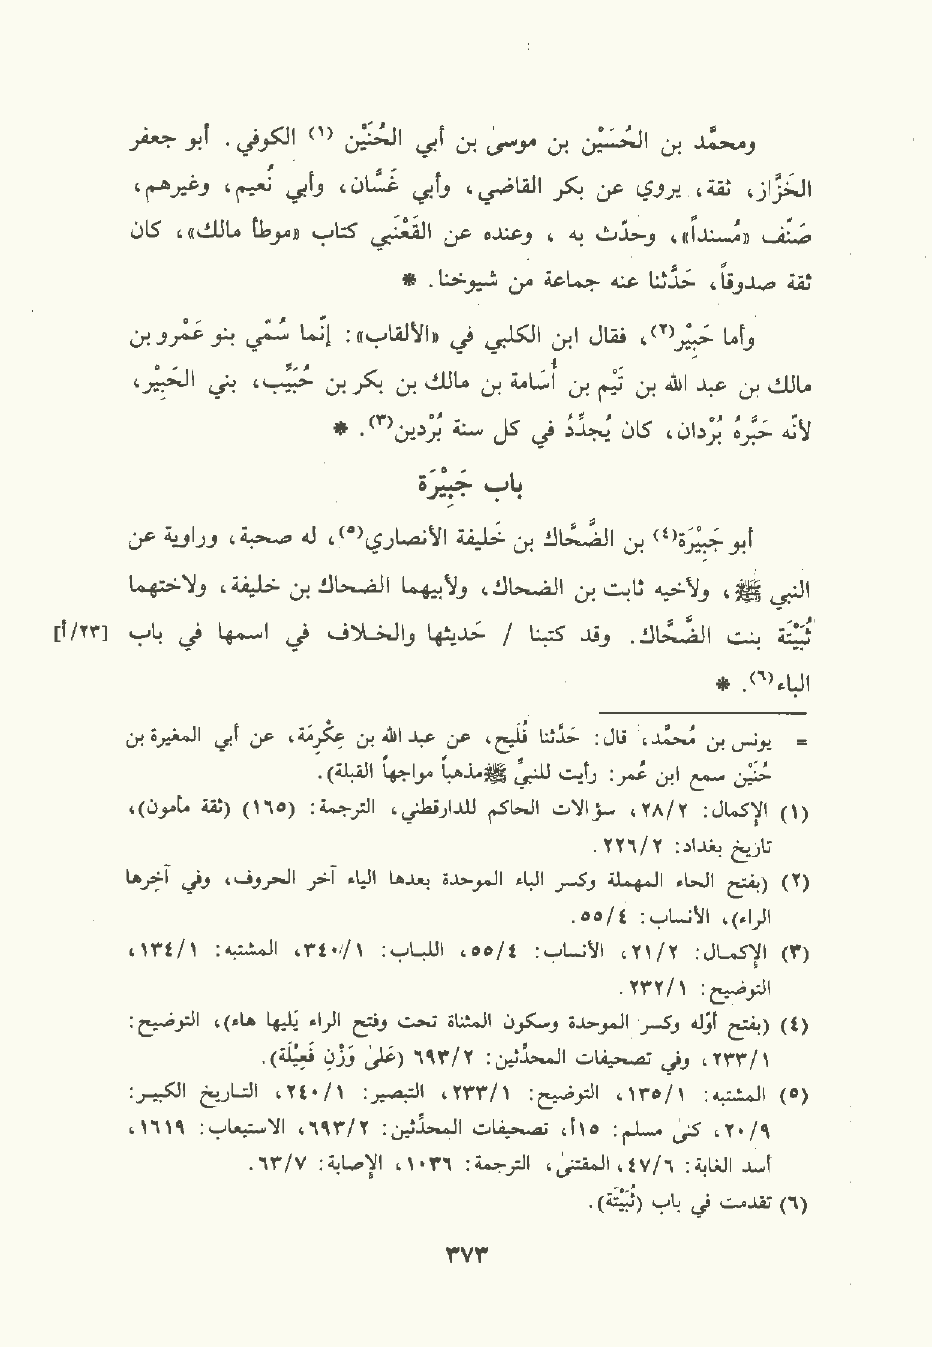 ومحمَّد بن الحُسَيْن بن موسىٰ بن أبي الحُنَيْن (١) الكوفي. أبو جعفر
الخَزَّاز، ثقة، يروي عن بكر القاضي، وأبي غَسَّان، وأبي نُعيم، وغيرهم،
صَنَّف «مُسنداً»، وحدَّث به ، وعنده عن القَعْنَبي كتاب «موطأ مالك»، كان
ثقة صدوقاً، حَدَّثنا عنه جماعة من شيوخنا. *
وأما حَبِيْر(٢)، فقال ابن الكلبي في «الألقاب»: إنَّما سُمِّي بنو عَمْرو بن
مالك بن عبد الله بن تَيْم بن أُسَامة بن مالك بن بكر بن حُبَيِّب، بني الحَبِيْر،
لأنَّه حَبَّرَهُ بُرْدان، كان يُجَدِّدُ في كل سنة بُرْدين(٣). *
باب جَبِيْرَة
أبو جَبِيْرَة(٤) بن الضَّحَاك بن خَليفة الأنصاري(٥)، له صحبة، ورواية عن
النبي ﷺ، ولأخيه ثابت بن الضحاك، ولأبيهما الضحاك بن خليفة، ولاختهما
ثُبَيْتَة بنت الضَّحاك. وقد كتبنا / حَديثها والخـلاف في اسمها في باب [٢٣/أ]
الباء(٦). *
= يونس بن مُحمَّد، قال: حَدَّثنا فُلَيح، عن عبد الله بن عِكْرِمَة، عن أبي المغيرة بن
حُنَيْن سمع ابن عُمر: رأيت للنبيِّ ﷺ مذهباً مواجهاً القبلة).
(١) الإكمال: ٢٨/٢، سؤالات الحاكم للدارقطني، الترجمة: (١٦٥) (ثقة مأمون)،
تاريخ بغداد: ٢٢٦/٢.
(٢) (بفتح الحاء المهملة وكسر الباء الموحدة بعدها الياء آخر الحروف، وفي آخرها
الراء)، الأنساب: ٥٥/٤.
(٣) الإكمال: ٢١/٢، الأنساب: ٥٥/٤، اللباب: ٣٤٠/١، المشتبه: ١٣٤/١،
التوضيح: ٢٣٢/١.
(٤) (بفتح أوّله وكسر الموحدة وسكون المثناة تحت وفتح الراء يليها هاء)، التوضيح:
٢٣٣/١، وفي تصحيفات المحدّثين: ٦٩٣/٢ (عَلىٰ وَزْنِ فَعِيْلَة).
(٥) المشتبه: ١٣٥/١، التوضيح: ٢٣٣/١، التبصير: ٢٤٠/١، التـاريخ الكبيـر:
٢٠/٩، كنى مسلم: ١٥أ، تصحيفات المحدّثين: ٦٩٣/٢، الاستيعاب: ١٦١٩،
أسد الغابة: ٤٧/٦، المقتنىٰ، الترجمة: ١٠٣٦، الإصابة: ٦٣/٧.
(٦) تقدمت في باب (ثُبَيْتَة).
٣٧٣